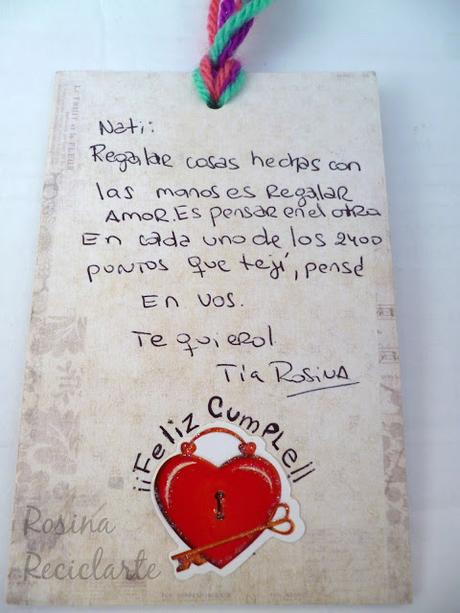 Nati:
Regalar cosas hechas con
las manos es Regalar
AMOR. Es pensar en el otro
En cada uno de los 2400
puntos que tejí, pensé
En vos.
Te quiero!
Tía Rosina
¡¡Feliz Cumple!!
Rosina
Reciclarte